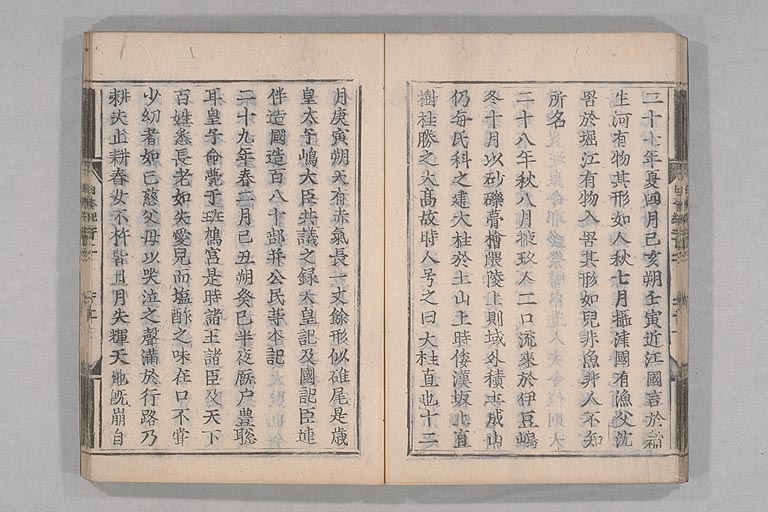 二十七年夏四月己亥朔壬寅近江國言於蒲
生河有物其形如人秋七月攝津國有漁父沈
罟於堀江有物入罟其形如兒非魚非人不知
所名
二十八年秋八月掖玖人二口流來於伊豆嶋
冬十月以砂礫葺檜隈陵上則域外積土成山
仍每氏科之建大柱於土山上時倭漢坂上直
樹柱勝之太高故時人号之曰大柱直也十二
月庚寅朔天有赤氣長一丈餘形似雉尾是歲
皇太子嶋大臣共議之録天皇記及國記臣連
伴造國造百八十部幷公民等本記
二十九年春二月己丑朔癸巳半夜厩户豊聡
耳皇子命薨于斑鳩宮是時諸王諸臣及天下
百姓悉長老如失愛兒而塩酢之味在口不甞
少幼者如亡慈父母以哭泣之聲滿於行路乃
耕夫止耕舂女不杵皆曰日月失輝天地既崩自